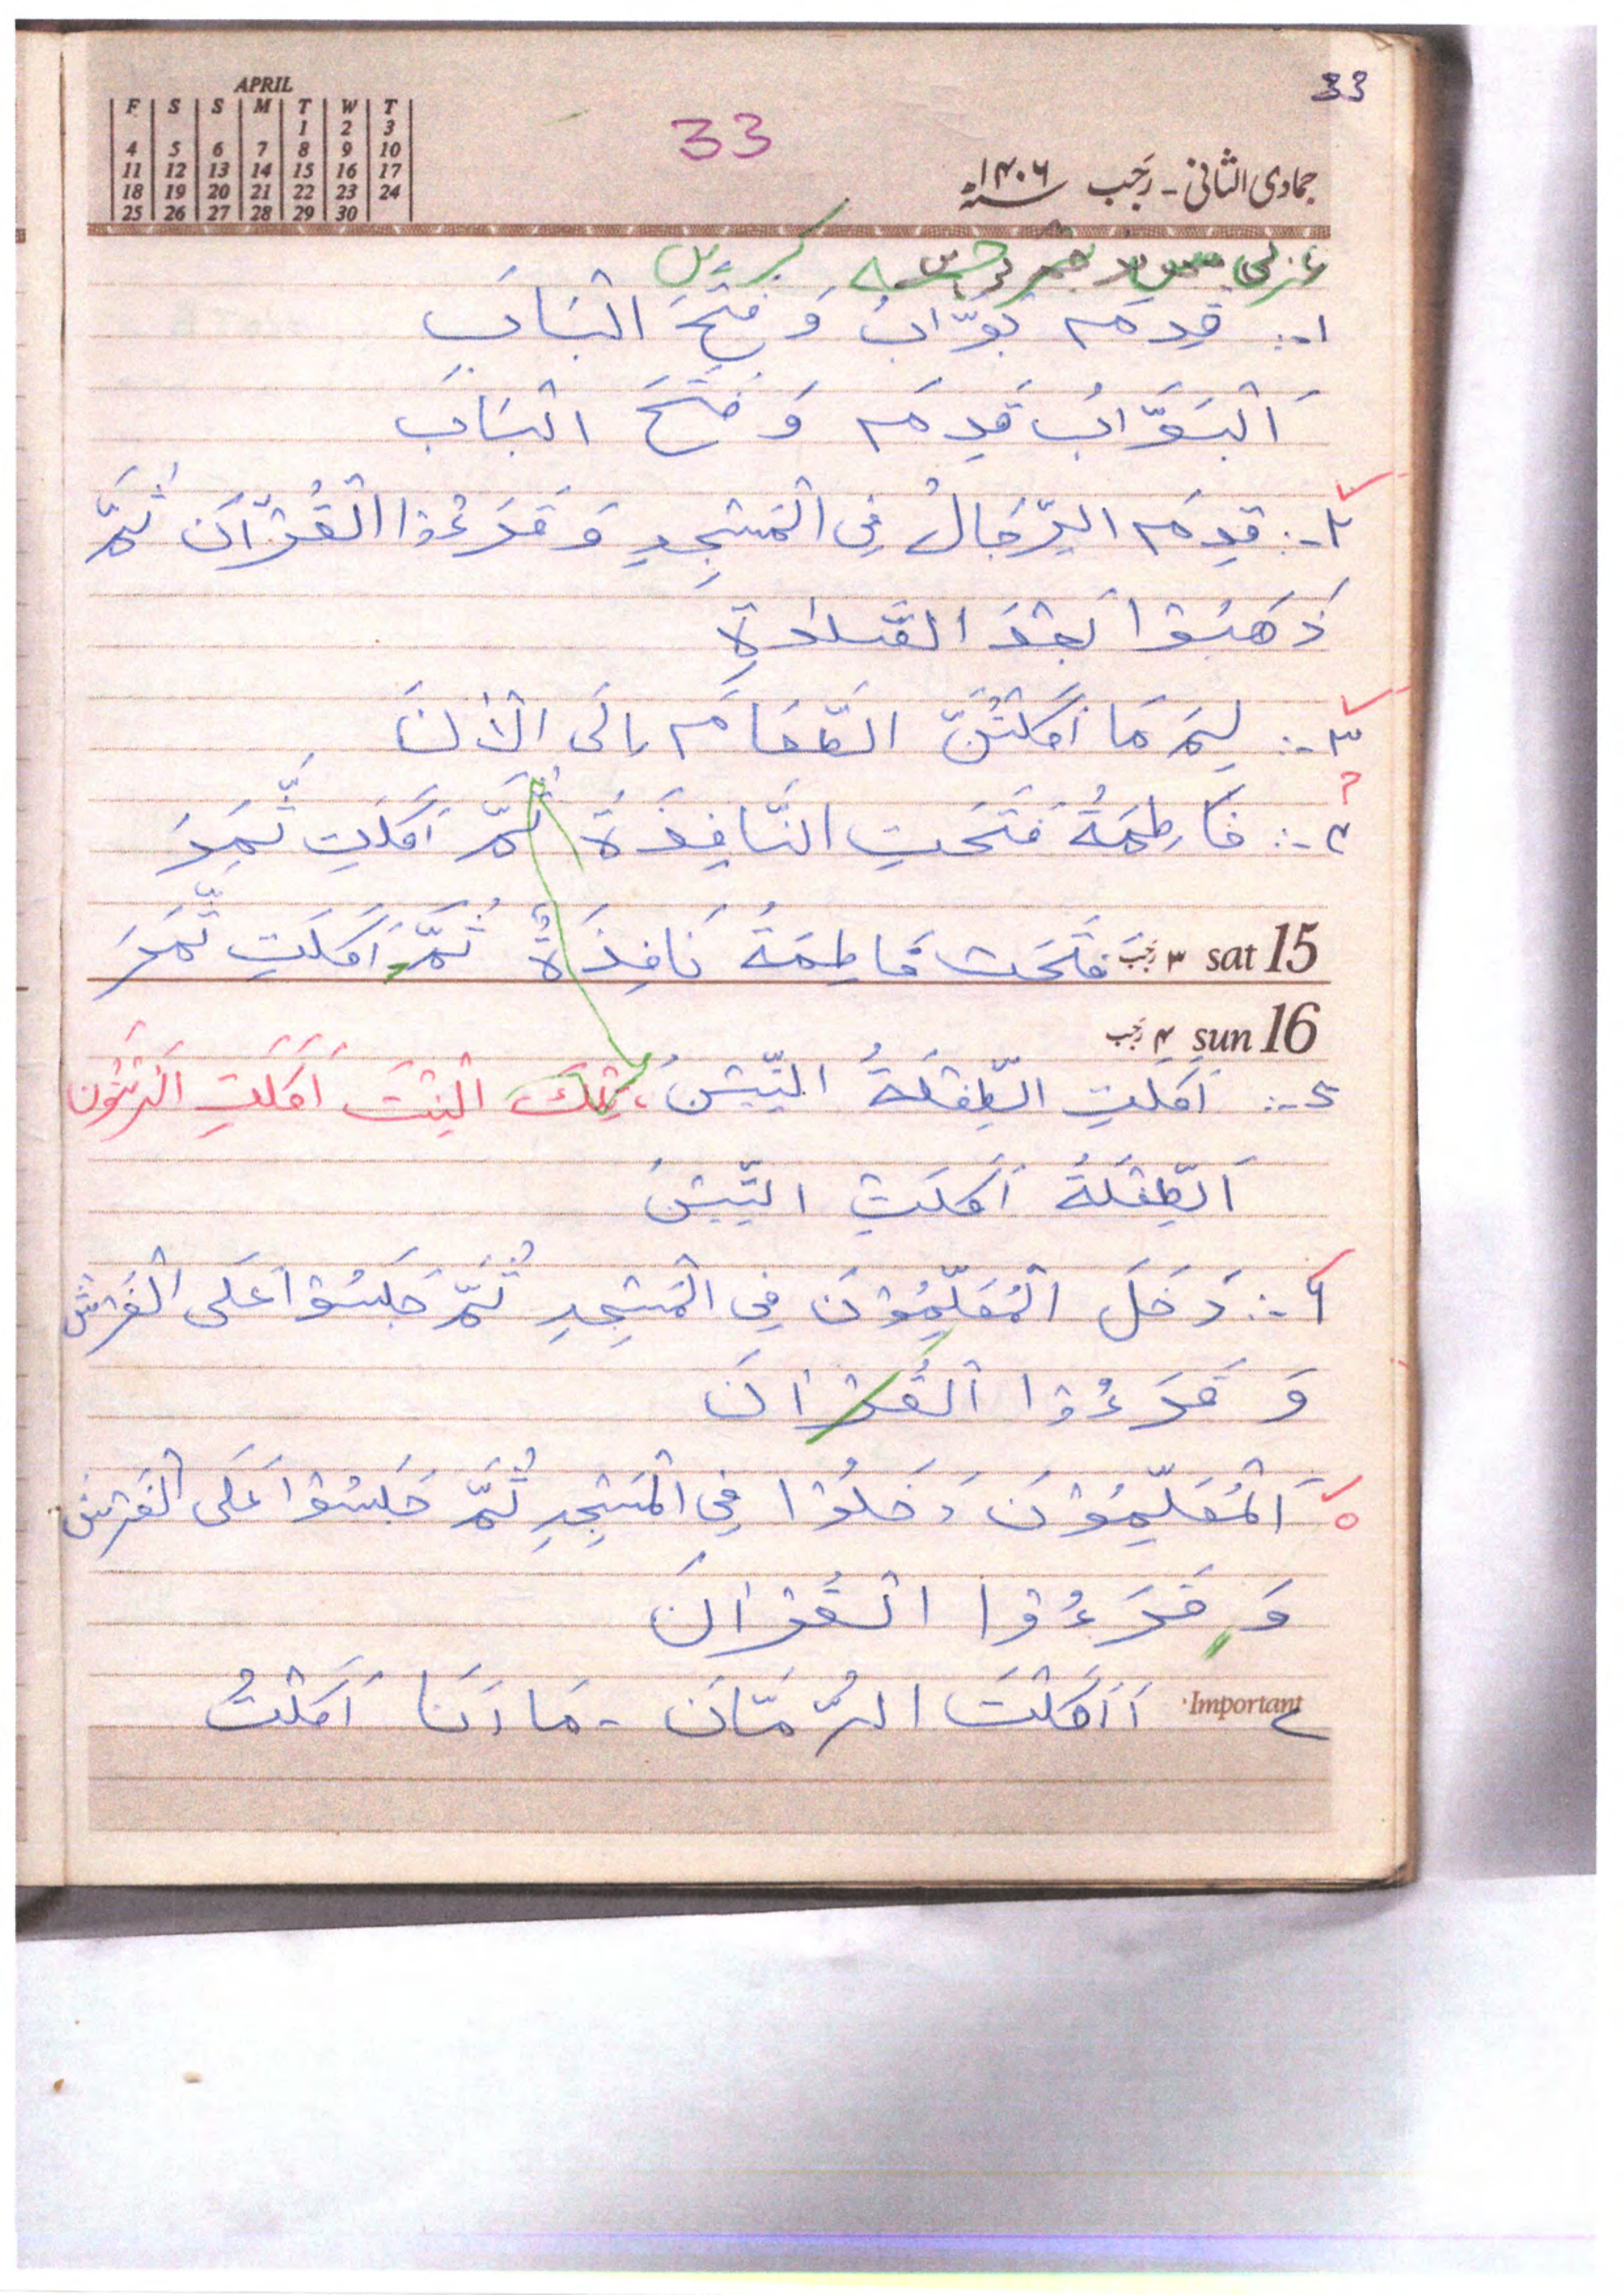 33
APRIL
F S S M T W T
1 2 3
4 5 6 7 8 9 10
11 12 13 14 15 16 17
18 19 20 21 22 23 24
25 26 27 28 29 30
33
جمادی الثانی - رجب ۱۴۰۶ھ
عربی میں ترجمہ کریں
۱-: قَدِمَ بَوَّابٌ وَ فَتَحَ الْبَابَ
اَلْبَوَّابُ قَدِمَ وَ فَتَحَ الْبَابَ
۲-: قَدِمَ الرِّجَالُ فِی الْمَسْجِدِ وَ قَرَءُوْا الْقُرْآنَ ثُمَّ
ذَهَبُوْا بَعْدَ الصَّلٰوةِ
۳-: لِمَ مَا أَكَلْتُنَّ الطَّعَامَ اِلَى الْاٰنَ
۴-: فَاطِمَةُ فَتَحَتِ النَّافِذَةَ ثُمَّ اَكَلَتِ ثَمَرَ
sat 15 ۳ رجب فَتَحَتْ فَاطِمَةُ نَافِذَةً ثُمَّ اَكَلَتِ ثَمَرَ
sun 16 ۴ رجب
۵-: اَكَلَتِ الطِّفْلَةُ التِّيْنَ، تِلْكَ الْبِنْتُ اَكَلَتِ الزَّيْتُون
اَلطِّفْلَةُ اَكَلَتِ التِّيْنَ
۶-: دَخَلَ الْمُعَلِّمُوْنَ فِی الْمَسْجِدِ ثُمَّ جَلَسُوْا عَلَى الْفَرْشِ
وَ قَرَءُوْا الْقُرْاٰنَ
اَلْمُعَلِّمُوْنَ دَخَلُوْا فِی الْمَسْجِدِ ثُمَّ جَلَسُوْا عَلَى الْفَرْشِ
وَ قَرَءُوْا الْقُرْاٰنَ
Important
أَ اَكَلْتَ الرُّمَّانَ - مَا اَنَا اَكَلْتُ